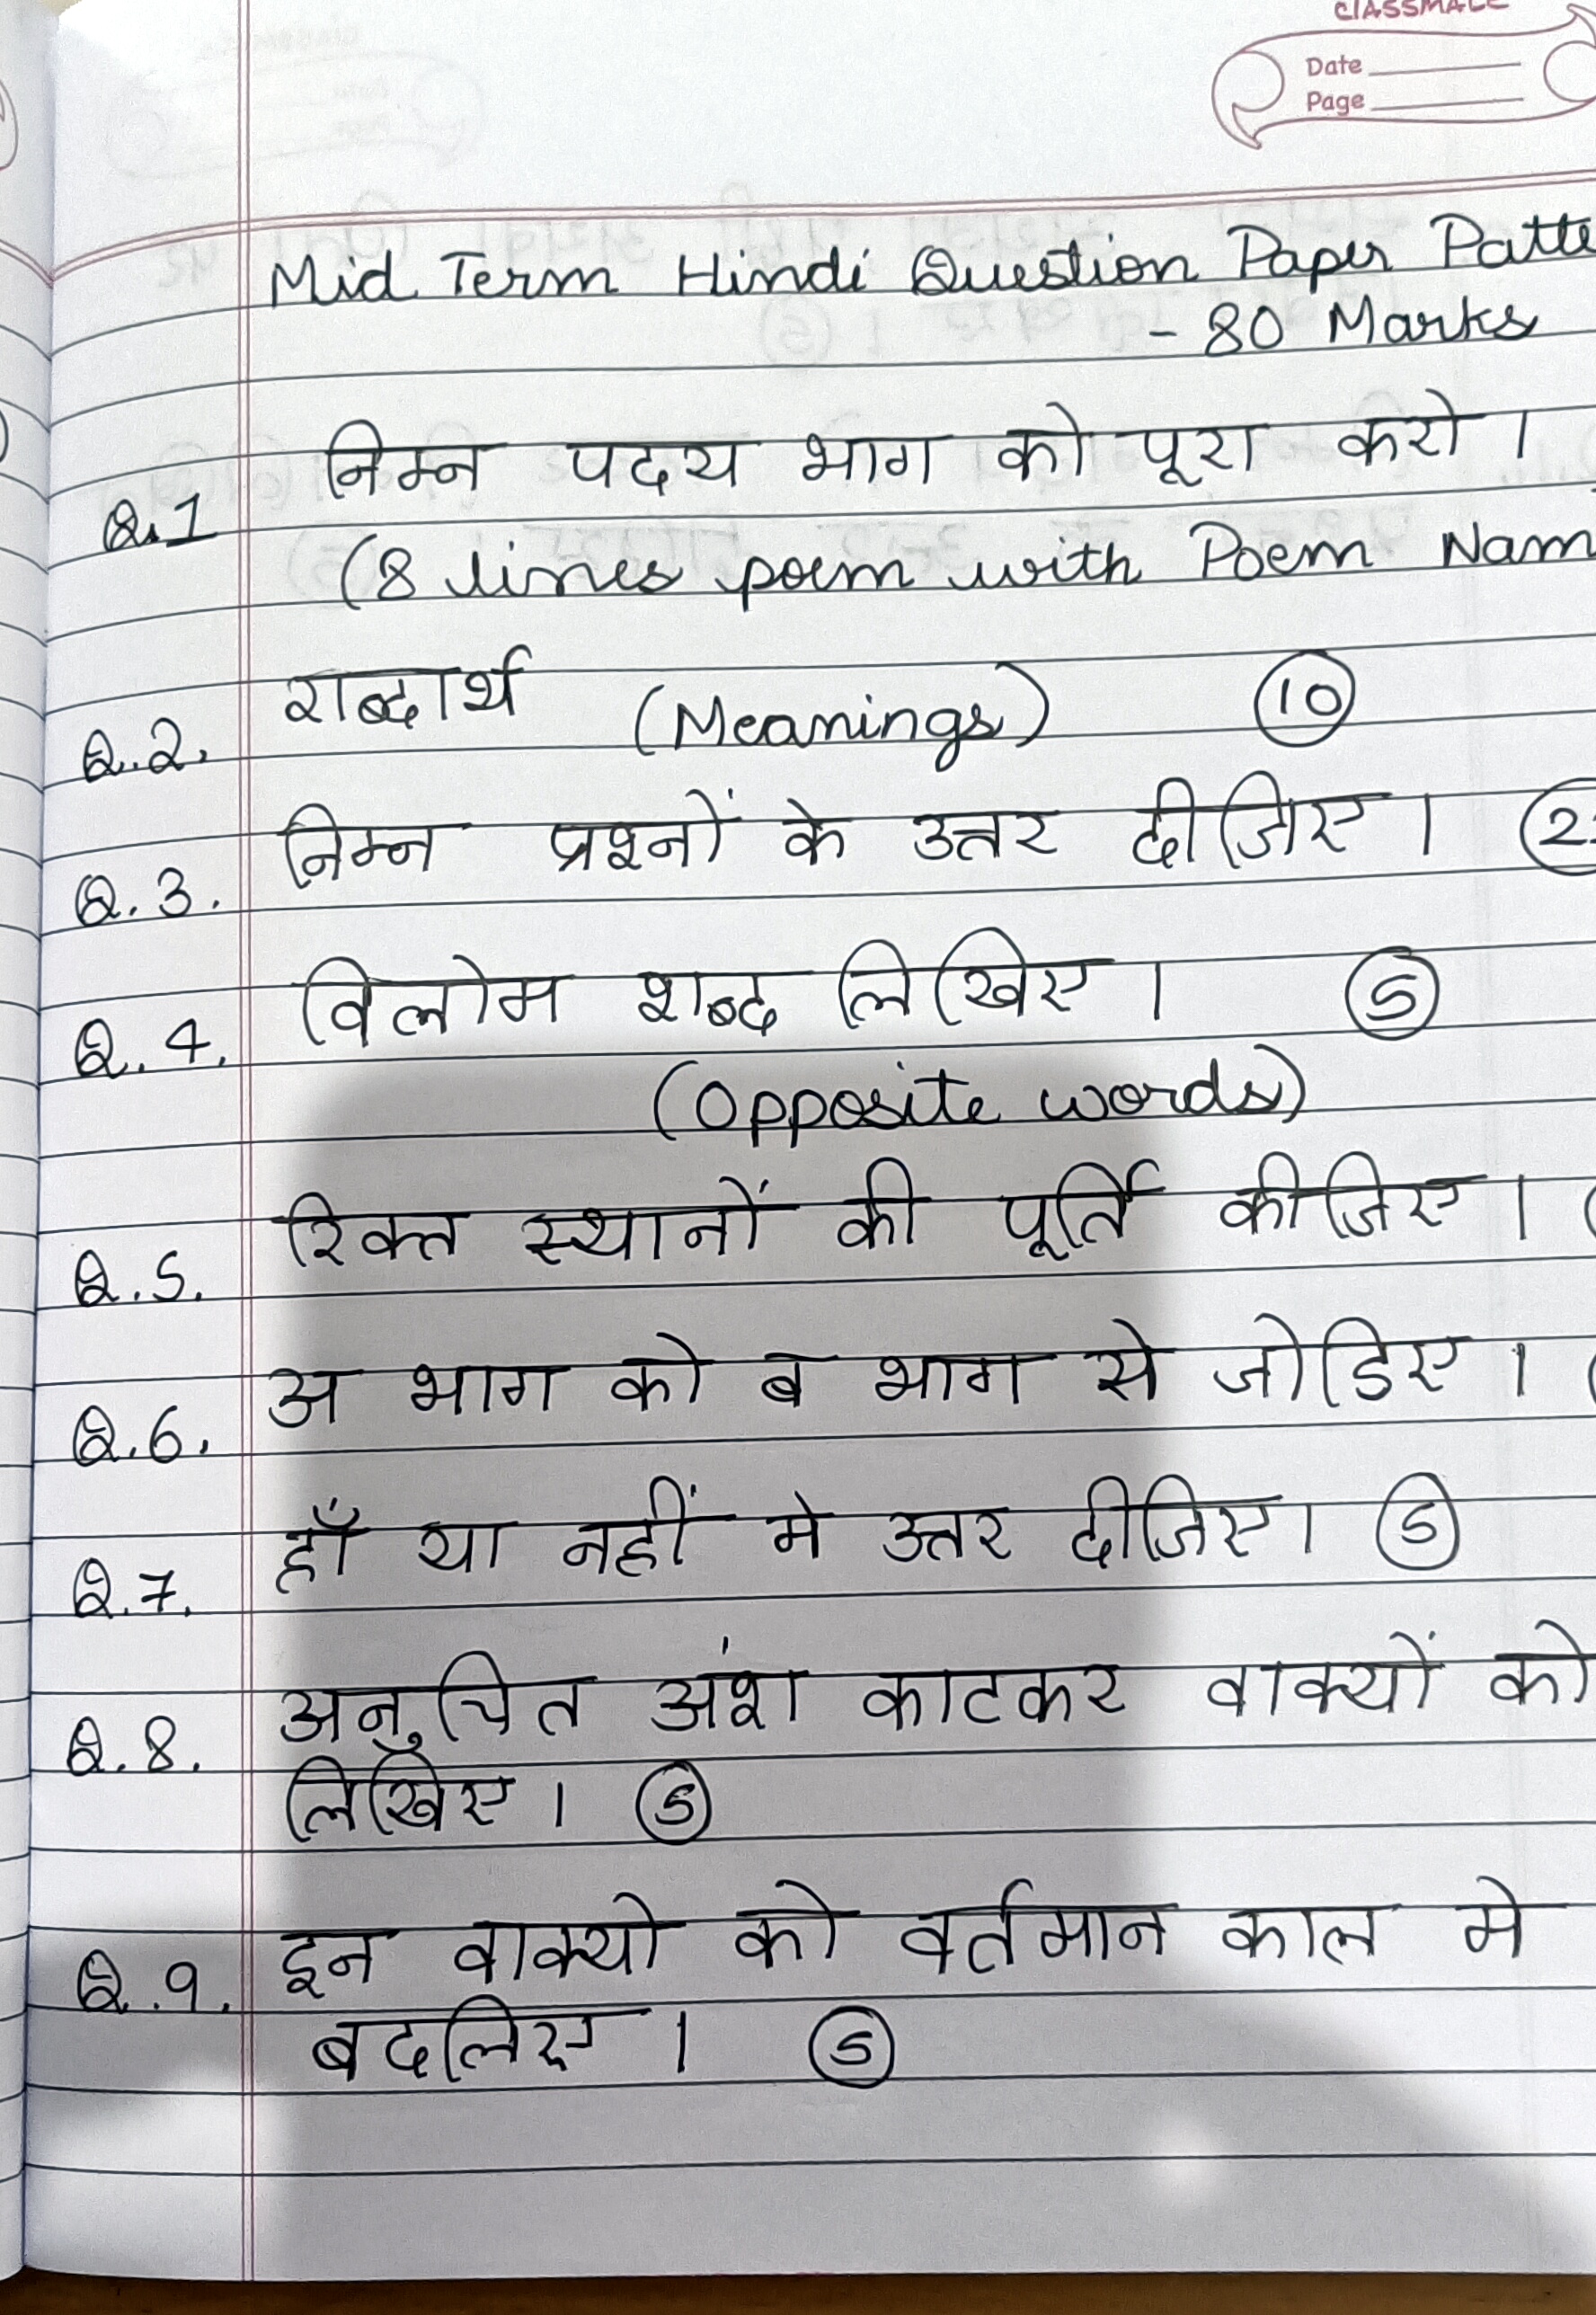 CLASSMATE
Date
Page
Mid Term Hindi Question Paper Patte
- 80 Marks
Q.1 निम्न पदय भाग को पूरा करो ।
(8 lines poem with Poem Nam
Q.2. शब्दार्थ (Meanings) 10
Q.3. निम्न प्रश्नों के उत्तर दीजिए । 2
Q.4. विलोम शब्द लिखिए । 5
(Opposite words)
Q.5. रिक्त स्थानों की पूर्ति कीजिए ।
Q.6. अ भाग को ब भाग से जोडिए ।
Q.7. हाँ या नहीं मे उत्तर दीजिए। 5
Q.8. अनुचित अंश काटकर वाक्यों को
लिखिए । 5
Q.9. इन वाक्यो को वर्तमान काल मे
बदलिए । 5